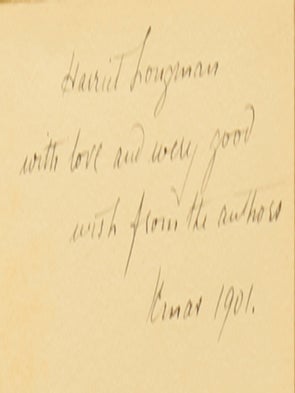 Harriet Longman
with love and every good
wish from the authors
Xmas 1901.